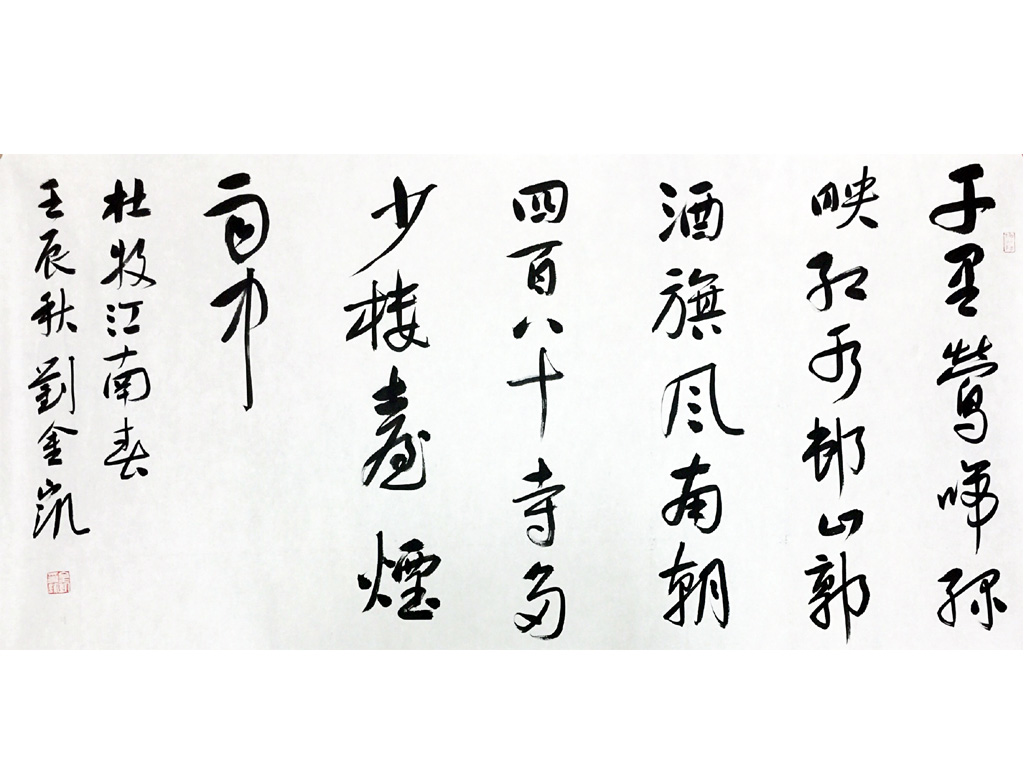 千里鶯啼綠
映紅水邨山郭
酒旗風南朝
四百八十寺多
少樓臺煙
雨中
杜牧江南春
壬辰秋劉金凱